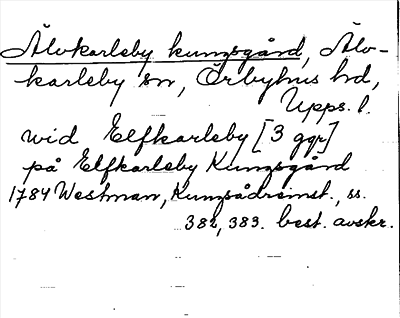 Älvkarleby kungsgård, Älv-
karleby sn, Örbyhus hd,
Upps. l.
wid Elfkarleby [3 ggr]
på Elfkarleby Kungsgård
1784 Westman, Kungsådreinst., ss.
382, 383. best. avskr.